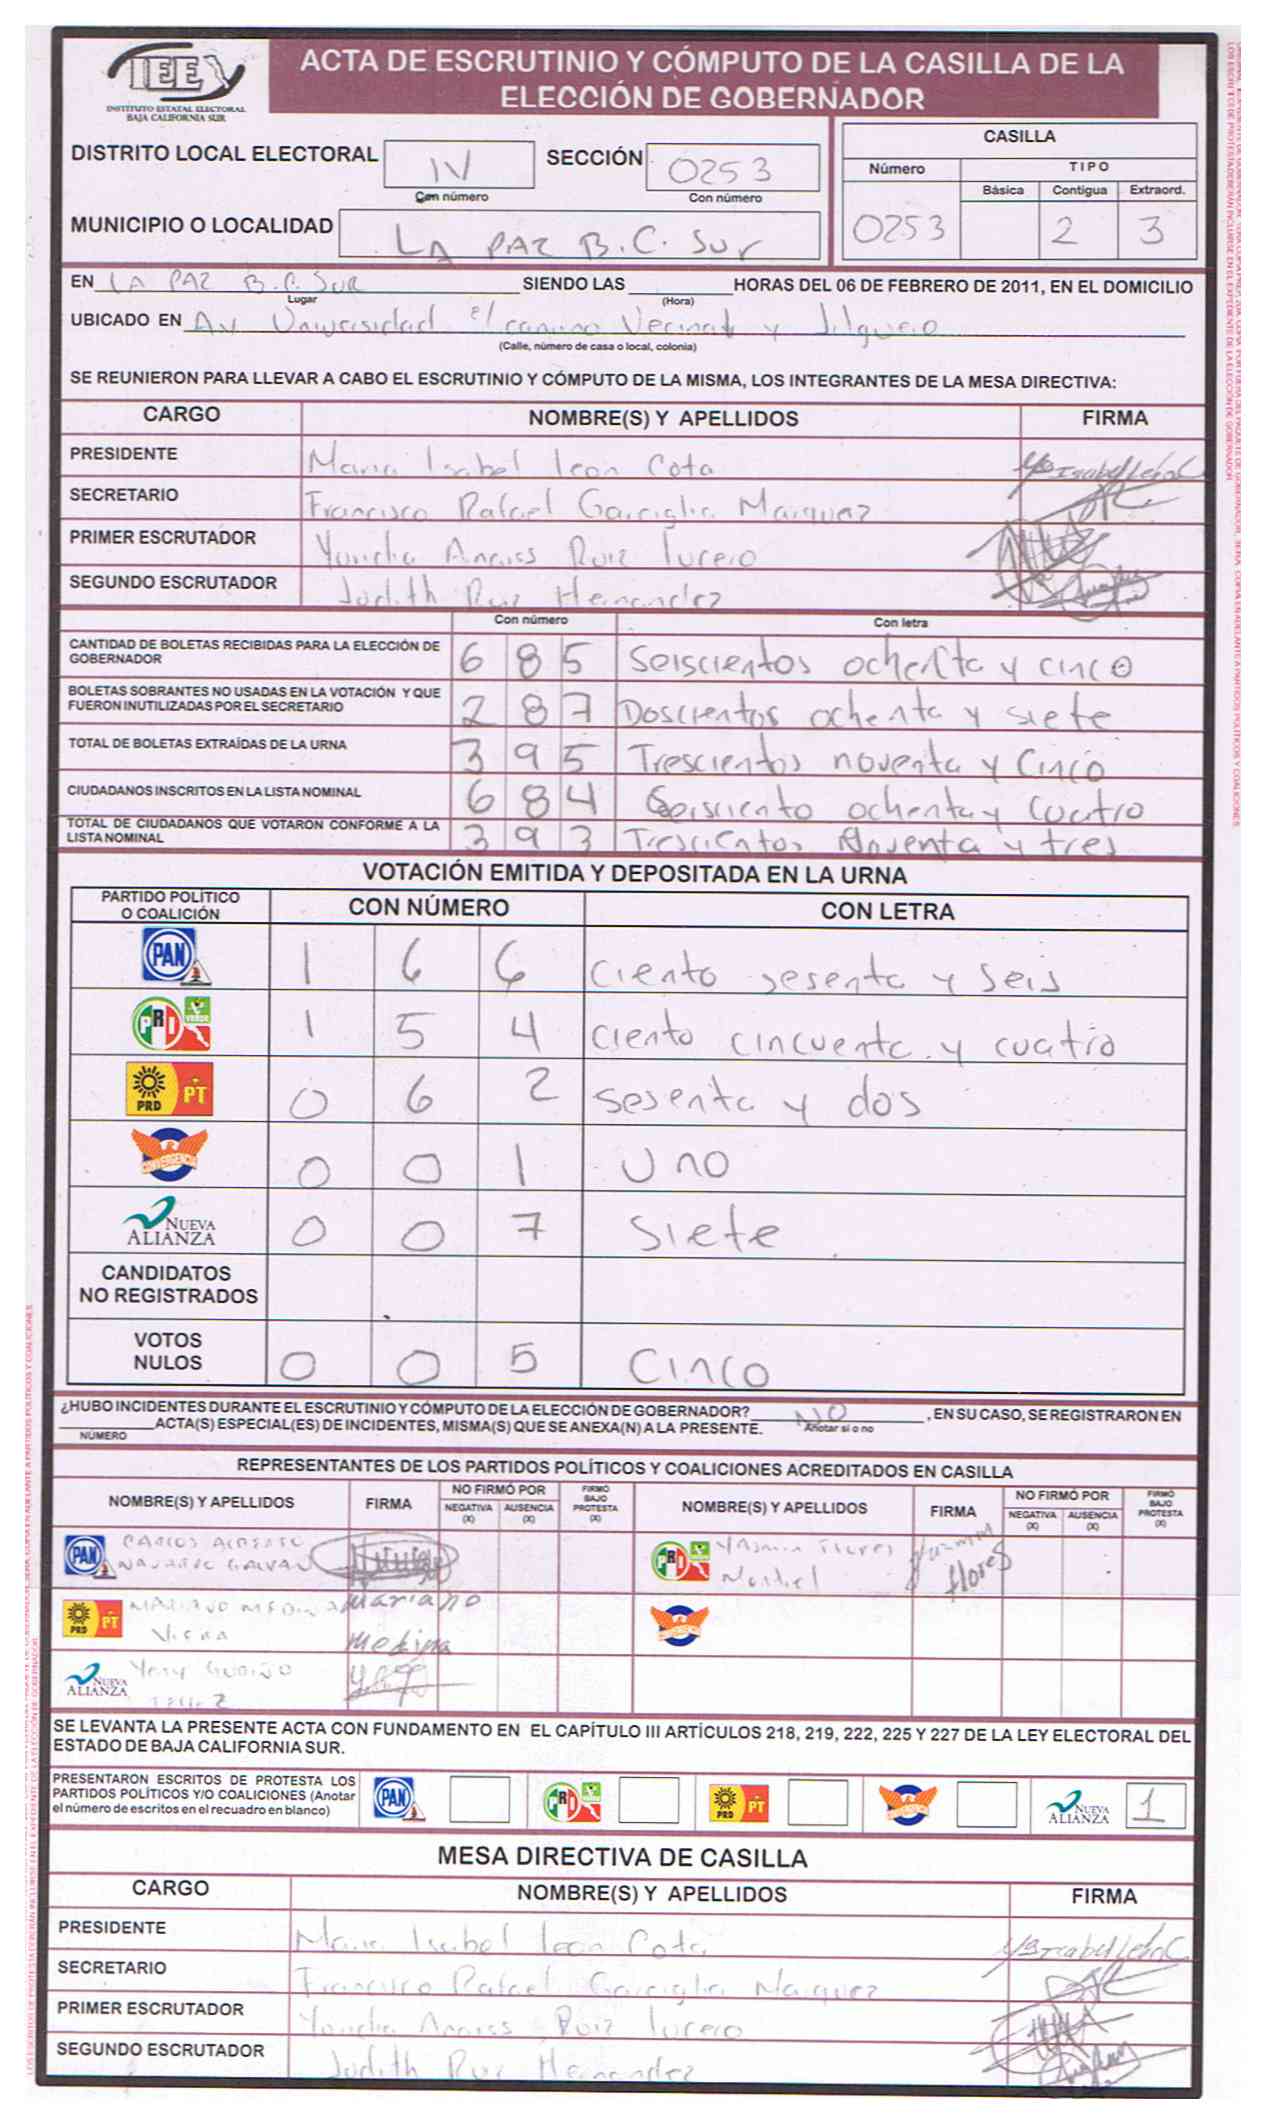 IEE
INSTITUTO ESTATAL ELECTORAL
BAJA CALIFORNIA SUR
ACTA DE ESCRUTINIO Y CÓMPUTO DE LA CASILLA DE LA
ELECCIÓN DE GOBERNADOR
DISTRITO LOCAL ELECTORAL IV SECCIÓN 0253
Con número Con número
MUNICIPIO O LOCALIDAD LA PAZ B.C. Sur
CASILLA
Número TIPO
Básica Contigua Extraord.
0253 2 3
EN LA PAZ B.C. SUR SIENDO LAS HORAS DEL 06 DE FEBRERO DE 2011, EN EL DOMICILIO
Lugar (Hora)
UBICADO EN Av Universidad el camino Vecinal y Jilguero
(Calle, número de casa o local, colonia)
SE REUNIERON PARA LLEVAR A CABO EL ESCRUTINIO Y CÓMPUTO DE LA MISMA, LOS INTEGRANTES DE LA MESA DIRECTIVA:
CARGO NOMBRE(S) Y APELLIDOS FIRMA
PRESIDENTE Maria Isabel Leon Cota Ma Isabel León C
SECRETARIO Francisco Rafael Garciglia Marquez
PRIMER ESCRUTADOR Ruiz Lucero
SEGUNDO ESCRUTADOR Judith Ruiz Hernandez
Con número Con letra
CANTIDAD DE BOLETAS RECIBIDAS PARA LA ELECCIÓN DE
GOBERNADOR 6 8 5 Seiscientos ochenta y cinco
BOLETAS SOBRANTES NO USADAS EN LA VOTACIÓN Y QUE
FUERON INUTILIZADAS POR EL SECRETARIO 2 8 7 Doscientos ochenta y siete
TOTAL DE BOLETAS EXTRAÍDAS DE LA URNA 3 9 5 Trescientos noventa y Cinco
CIUDADANOS INSCRITOS EN LA LISTA NOMINAL 6 8 4 Seisciento ochenta y cuatro
TOTAL DE CIUDADANOS QUE VOTARON CONFORME A LA
LISTA NOMINAL 3 9 3 Trescientos Noventa y tres
VOTACIÓN EMITIDA Y DEPOSITADA EN LA URNA
PARTIDO POLÍTICO
O COALICIÓN CON NÚMERO CON LETRA
PAN 1 6 6 ciento sesenta y seis
PRI VERDE 1 5 4 ciento cincuenta y cuatro
PRD PT 0 6 2 sesenta y dos
CONVERGENCIA 0 0 1 Uno
NUEVA ALIANZA 0 0 7 Siete
CANDIDATOS
NO REGISTRADOS
VOTOS
NULOS 0 0 5 Cinco
¿HUBO INCIDENTES DURANTE EL ESCRUTINIO Y CÓMPUTO DE LA ELECCIÓN DE GOBERNADOR? NO , EN SU CASO, SE REGISTRARON EN
ACTA(S) ESPECIAL(ES) DE INCIDENTES, MISMA(S) QUE SE ANEXA(N) A LA PRESENTE. Anotar si o no
NÚMERO
REPRESENTANTES DE LOS PARTIDOS POLÍTICOS Y COALICIONES ACREDITADOS EN CASILLA
NOMBRE(S) Y APELLIDOS FIRMA NO FIRMÓ POR NEGATIVA (X) AUSENCIA (X) FIRMÓ BAJO PROTESTA (X) NOMBRE(S) Y APELLIDOS FIRMA NO FIRMÓ POR NEGATIVA (X) AUSENCIA (X) FIRMÓ BAJO PROTESTA (X)
PAN CARLOS ALBERTO PRI Yasmin Flores Yasmin
NAVARRO GALVAN flores
PRD PT MARIANO MEDINA Mariano
Medina
NUEVA ALIANZA
SE LEVANTA LA PRESENTE ACTA CON FUNDAMENTO EN EL CAPÍTULO III ARTÍCULOS 218, 219, 222, 225 Y 227 DE LA LEY ELECTORAL DEL
ESTADO DE BAJA CALIFORNIA SUR.
PRESENTARON ESCRITOS DE PROTESTA LOS
PARTIDOS POLÍTICOS Y/O COALICIONES (Anotar
el número de escritos en el recuadro en blanco) PAN PRI PRD PT NUEVA ALIANZA 1
MESA DIRECTIVA DE CASILLA
CARGO NOMBRE(S) Y APELLIDOS FIRMA
PRESIDENTE Maria Isabel Leon Cota Ma Isabel León C
SECRETARIO Francisco Rafael Garciglia Marquez
PRIMER ESCRUTADOR Ruiz Lucero
SEGUNDO ESCRUTADOR Judith Ruiz Hernandez